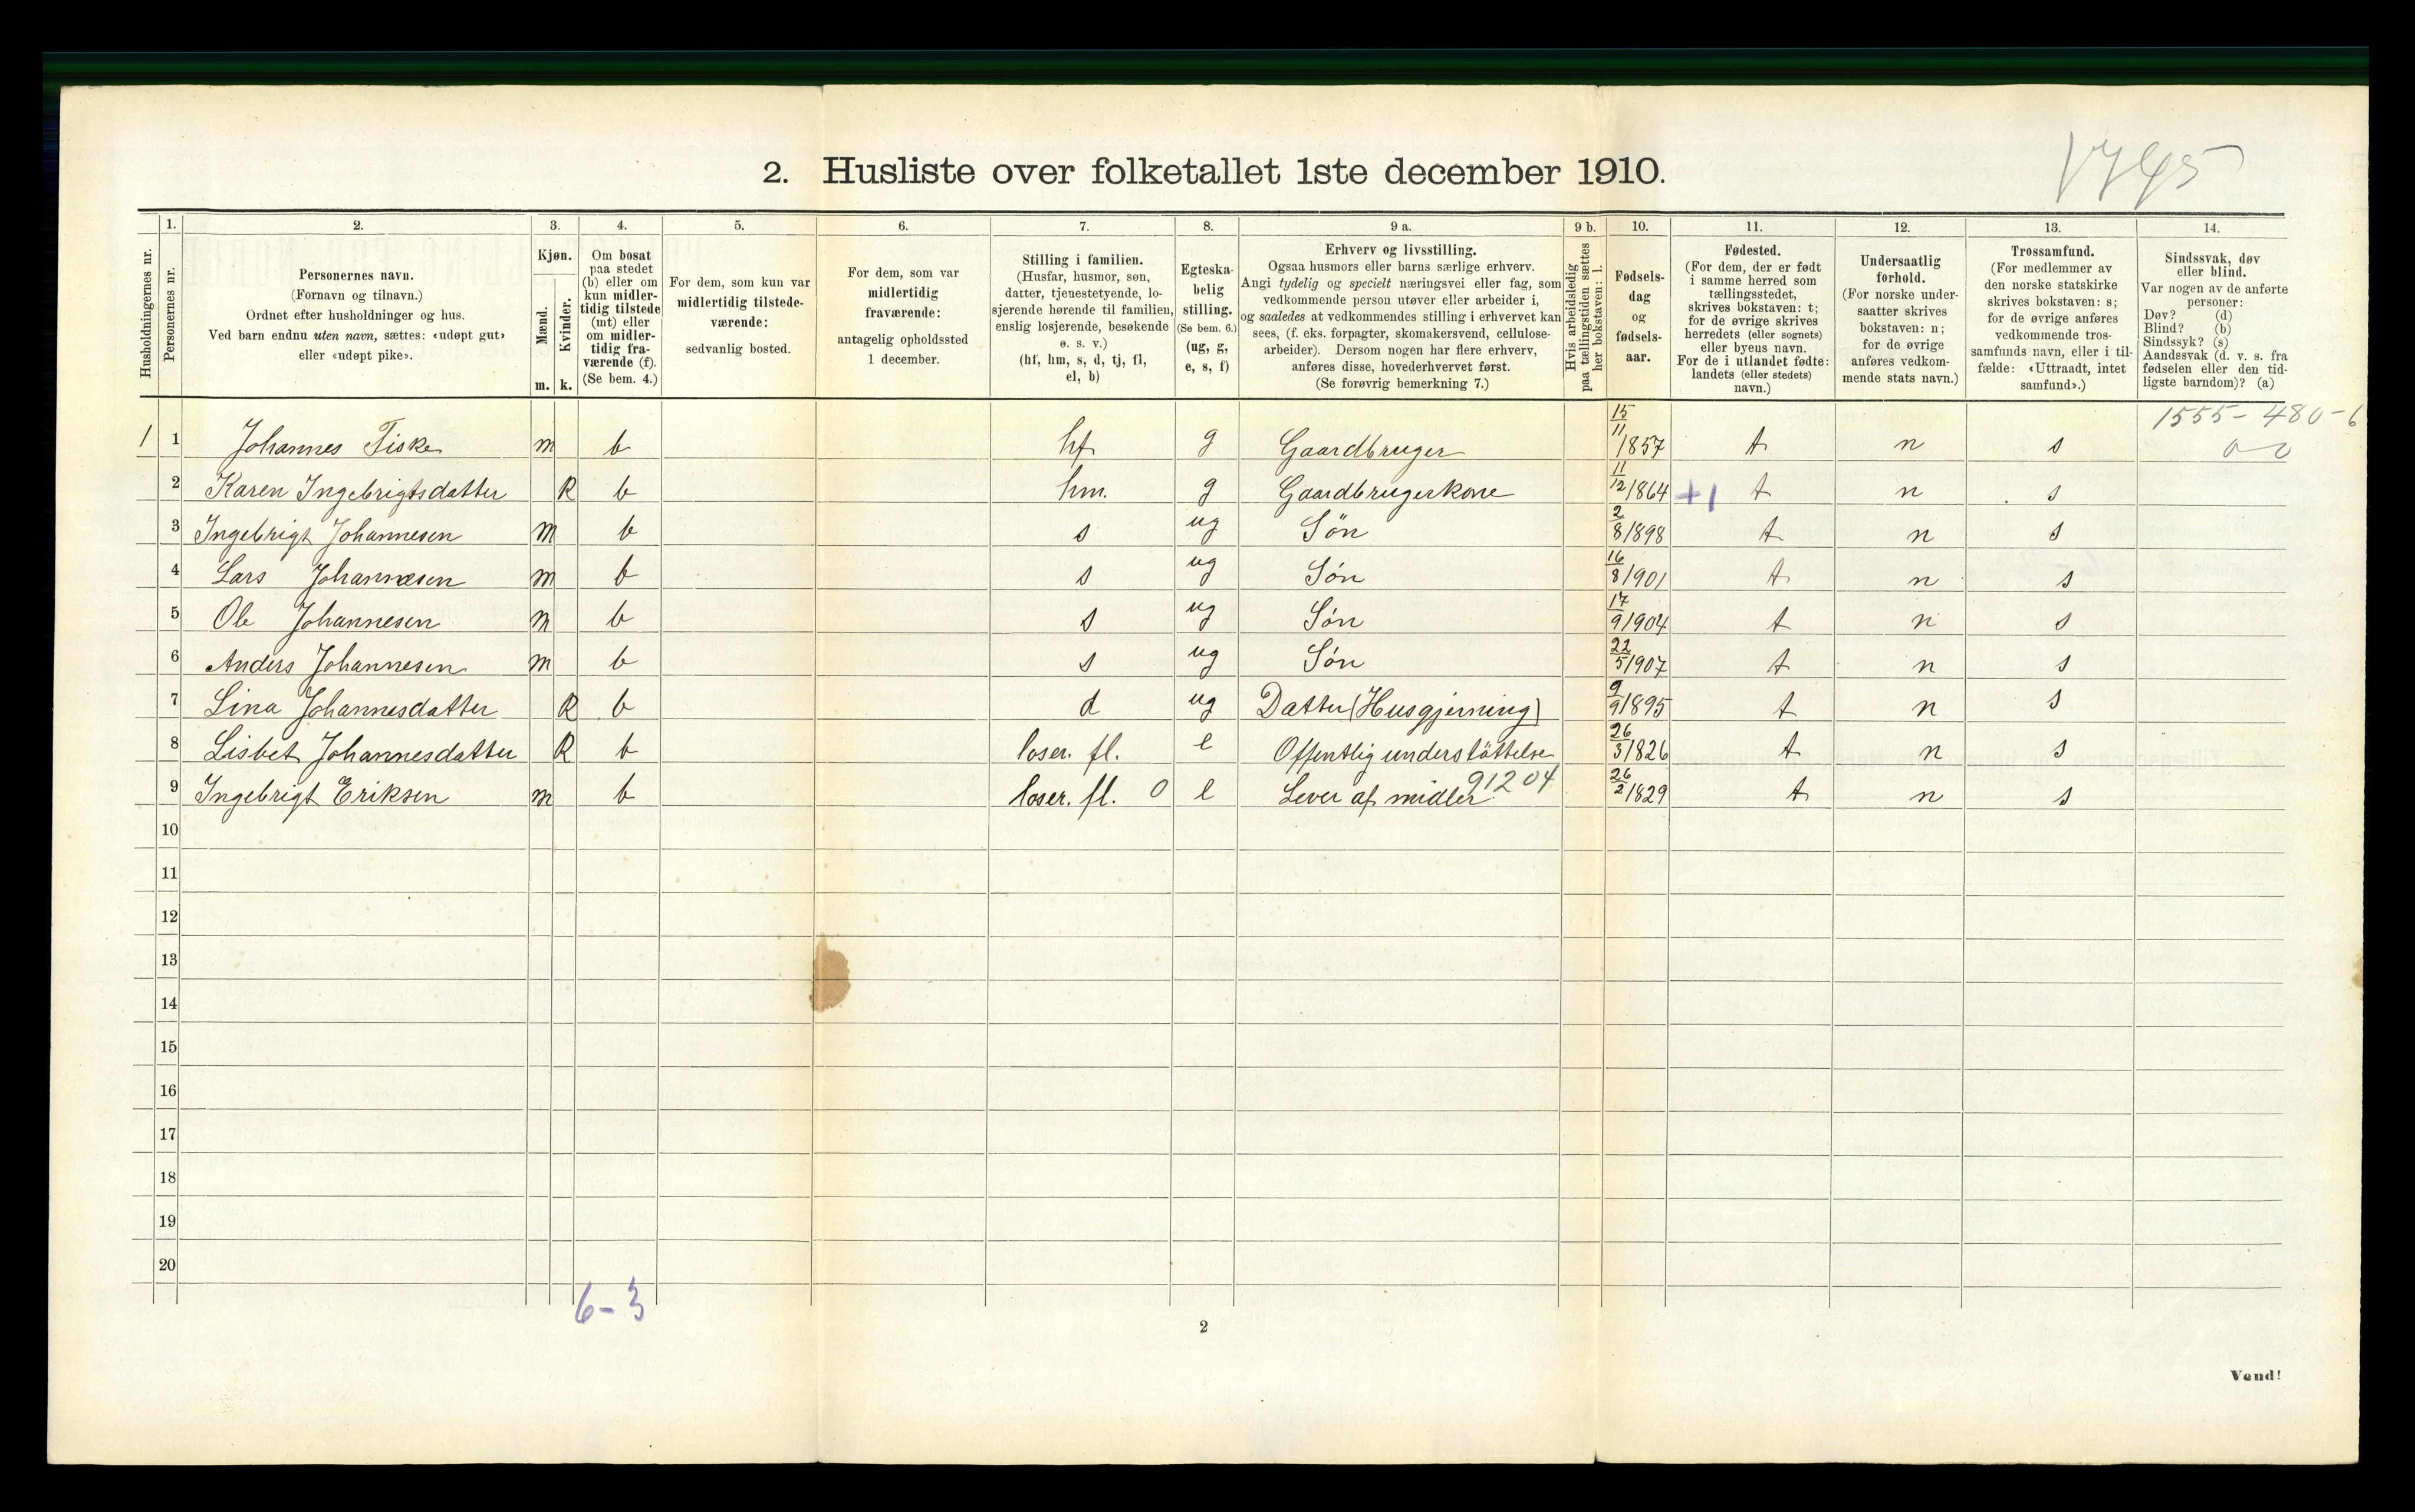 2. Husliste over folketallet 1ste december 1910.
1. 2. 3. 4. 5. 6. 7. 8. 9 a. 9 b. 10. 11. 12. 13. 14.
Husholdningernes nr.
Personernes nr.
Personernes navn.
(Fornavn og tilnavn.)
Ordnet efter husholdninger og hus.
Ved barn endnu uten navn, sættes: «udøpt gut»
eller «udøpt pike».
Kjøn.
Mænd.
Kvinder.
m. k.
Om bosat
paa stedet
(b) eller om
kun midler-
tidig tilstede
(mt) eller
om midler-
tidig fra-
værende (f).
(Se bem. 4.)
For dem, som kun var
midlertidig tilstede-
værende:
sedvanlig bosted.
For dem, som var
midlertidig
fraværende:
antagelig opholdssted
1 december.
Stilling i familien.
(Husfar, husmor, søn,
datter, tjenestetyende, lo-
sjerende hørende til familien,
enslig losjerende, besøkende
o. s. v.)
(hf, hm, s, d, tj, fl,
el, b)
Egteska-
belig
stilling.
(Se bem. 6.)
(ug, g,
e, s, f)
Erhverv og livsstilling.
Ogsaa husmors eller barns særlige erhverv.
Angi tydelig og specielt næringsvei eller fag, som
vedkommende person utøver eller arbeider i,
og saaledes at vedkommendes stilling i erhvervet kan
sees, (f. eks. forpagter, skomakersvend, cellulose-
arbeider). Dersom nogen har flere erhverv,
anføres disse, hovederhvervet først.
(Se forøvrig bemerkning 7.)
Hvis arbeidsledig
paa tællingstiden sættes
her bokstaven: l.
Fødsels-
dag
og
fødsels-
aar.
Fødested.
(For dem, der er født
i samme herred som
tællingsstedet,
skrives bokstaven: t;
for de øvrige skrives
herredets (eller sognets)
eller byens navn.
For de i utlandet fødte:
landets (eller stedets)
navn.)
Undersaatlig
forhold.
(For norske under-
saatter skrives
bokstaven: n;
for de øvrige
anføres vedkom-
mende stats navn.)
Trossamfund.
(For medlemmer av
den norske statskirke
skrives bokstaven: s;
for de øvrige anføres
vedkommende tros-
samfunds navn, eller i til-
fælde: «Uttraadt, intet
samfund».)
Sindssvak, døv
eller blind.
Var nogen av de anførte
personer:
Døv? (d)
Blind? (b)
Sindssyk? (s)
Aandssvak (d. v. s. fra
fødselen eller den tid-
ligste barndom)? (a)
1555-480-6
0 0
1 1 Johannes Fiske m b hf g Gaardbruger 15/11 1857 t n s
2 Karen Ingebrigtsdatter k b hm. g Gaardbrugerkone 11/12 1864 +1 t n s
3 Ingebrigt Johannesen m b s ug Søn 2/8 1898 t n s
4 Lars Johannesen m b s ug Søn 16/8 1901 t n s
5 Ole Johannesen m b s ug Søn 17/9 1904 t n s
6 Anders Johannesen m b s ug Søn 22/5 1907 t n s
7 Lina Johannesdatter k b d ug Datter (Husgjerning) 9/9 1895 t n s
8 Lisbet Johannesdatter k b loser. fl. e Offentlig understöttelse 26/3 1826 t n s
9 Ingebrigt Eriksen m b loser. fl. 0 e Lever af midler 91204 26/2 1829 t n s
10
11
12
13
14
15
16
17
18
19
20
6-3
2
Vend!